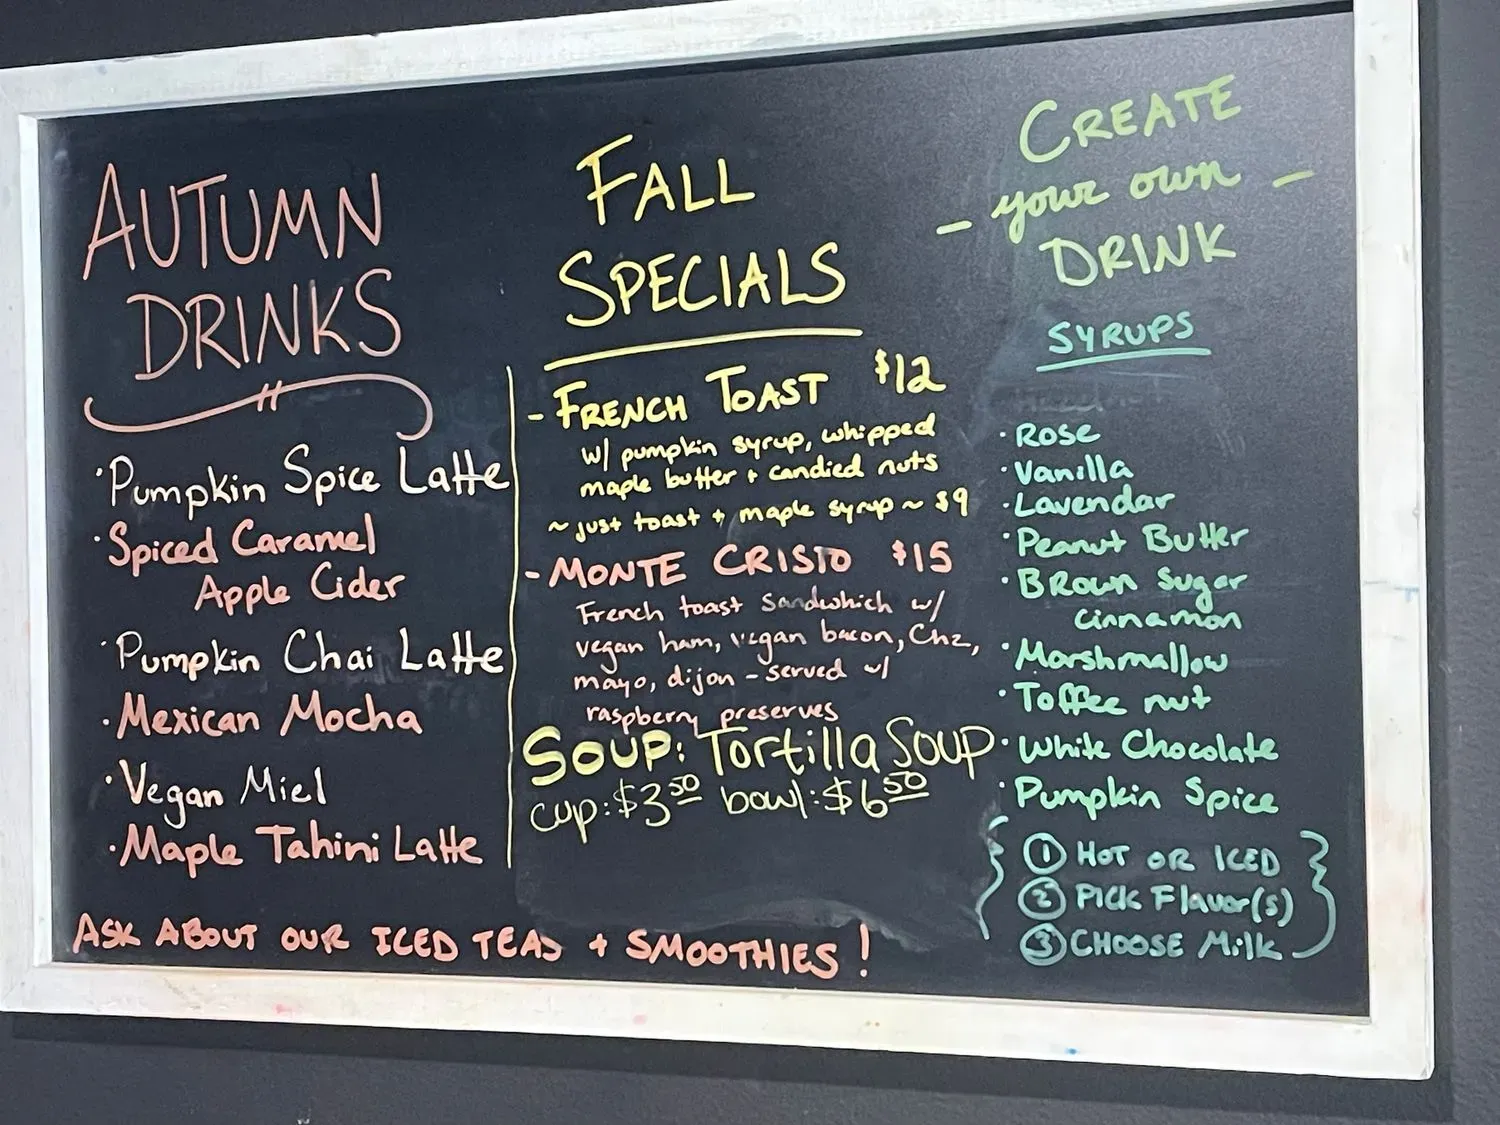 AUTUMN
DRINKS
·Pumpkin Spice Latte
·Spiced Caramel
Apple Cider
·Pumpkin Chai Latte
·Mexican Mocha
·Vegan Miel
·Maple Tahini Latte
ASK ABOUT OUR ICED TEAS + SMOOTHIES!
FALL
SPECIALS
- FRENCH TOAST $12
w/ pumpkin syrup, whipped
maple butter + candied nuts
~ just toast + maple syrup ~ $9
- MONTE CRISTO $15
French toast Sandwhich w/
vegan ham, vegan bacon, Chz,
mayo, dijon - served w/
raspberry preserves
SOUP: Tortilla Soup
cup: $3.50 bowl: $6.50
CREATE
- your own -
DRINK
SYRUPS
·Rose
·Vanilla
·Lavendar
·Peanut Butter
·Brown Sugar
Cinnamon
·Marshmallow
·Toffee nut
·White Chocolate
·Pumpkin Spice
① HOT OR ICED
② PICK Flavor(s)
③ CHOOSE Milk